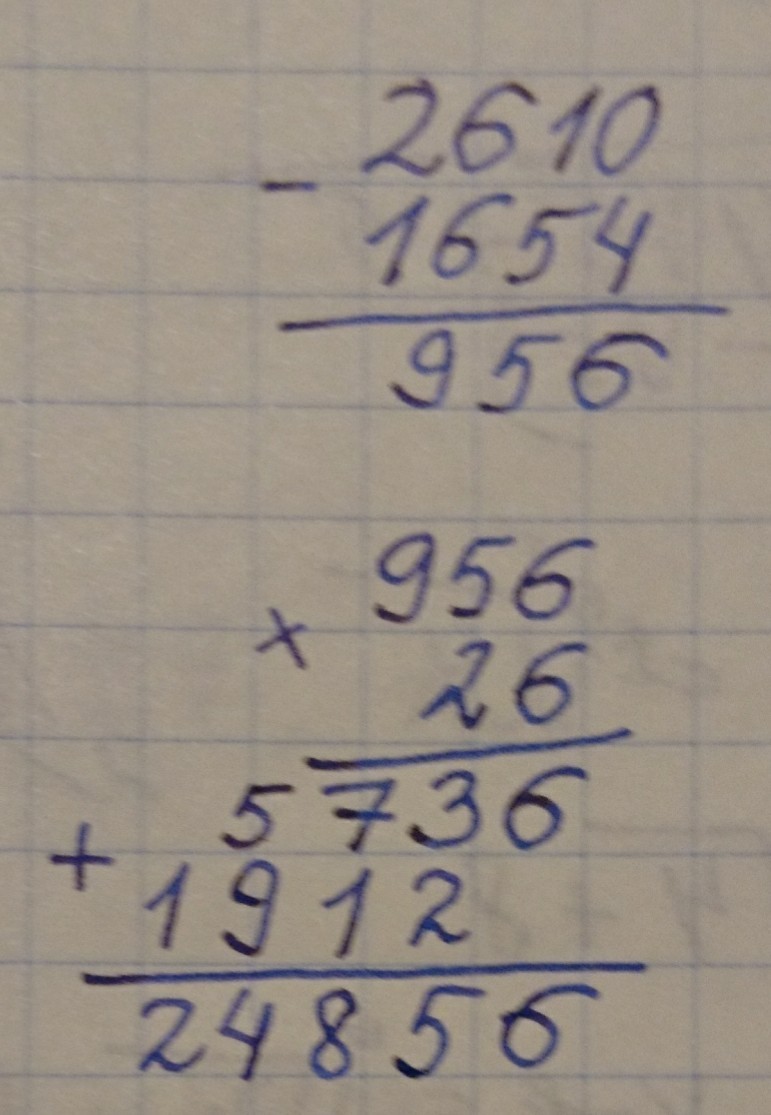 2610
- 
1654
956
956
×
26
5736
+
1912
24856